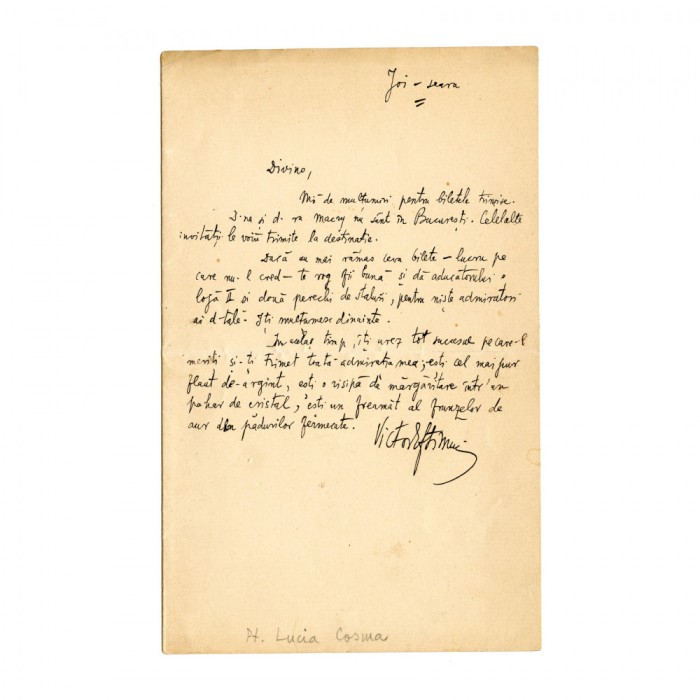 Joi – seara
Divino,
Mii de mulțumiri pentru biletele trimise.
D-na și d-ra Macry nu sunt în București. Celelalte
invitații le voiu trimite la destinație.
Dacă au mai rămas ceva bilete – lucru pe
care nu-l cred – te rog fii bună și dă aducătorului o
logă II și două perechi de staluri, pentru niște admiratori
ai d-tale. Îți mulțumesc dinainte.
În acelaș timp, îți urez tot succesul pe care-l
meriți și-ți trimet toată admirația mea; ești cel mai pur
flaut de argint, ești o risipă de mărgăritare într'un
pahar de cristal, ești un freamăt al frunzelor de
aur din pădurilor fermecate.
Victor Eftimiu
Pt. Lucia Cosma